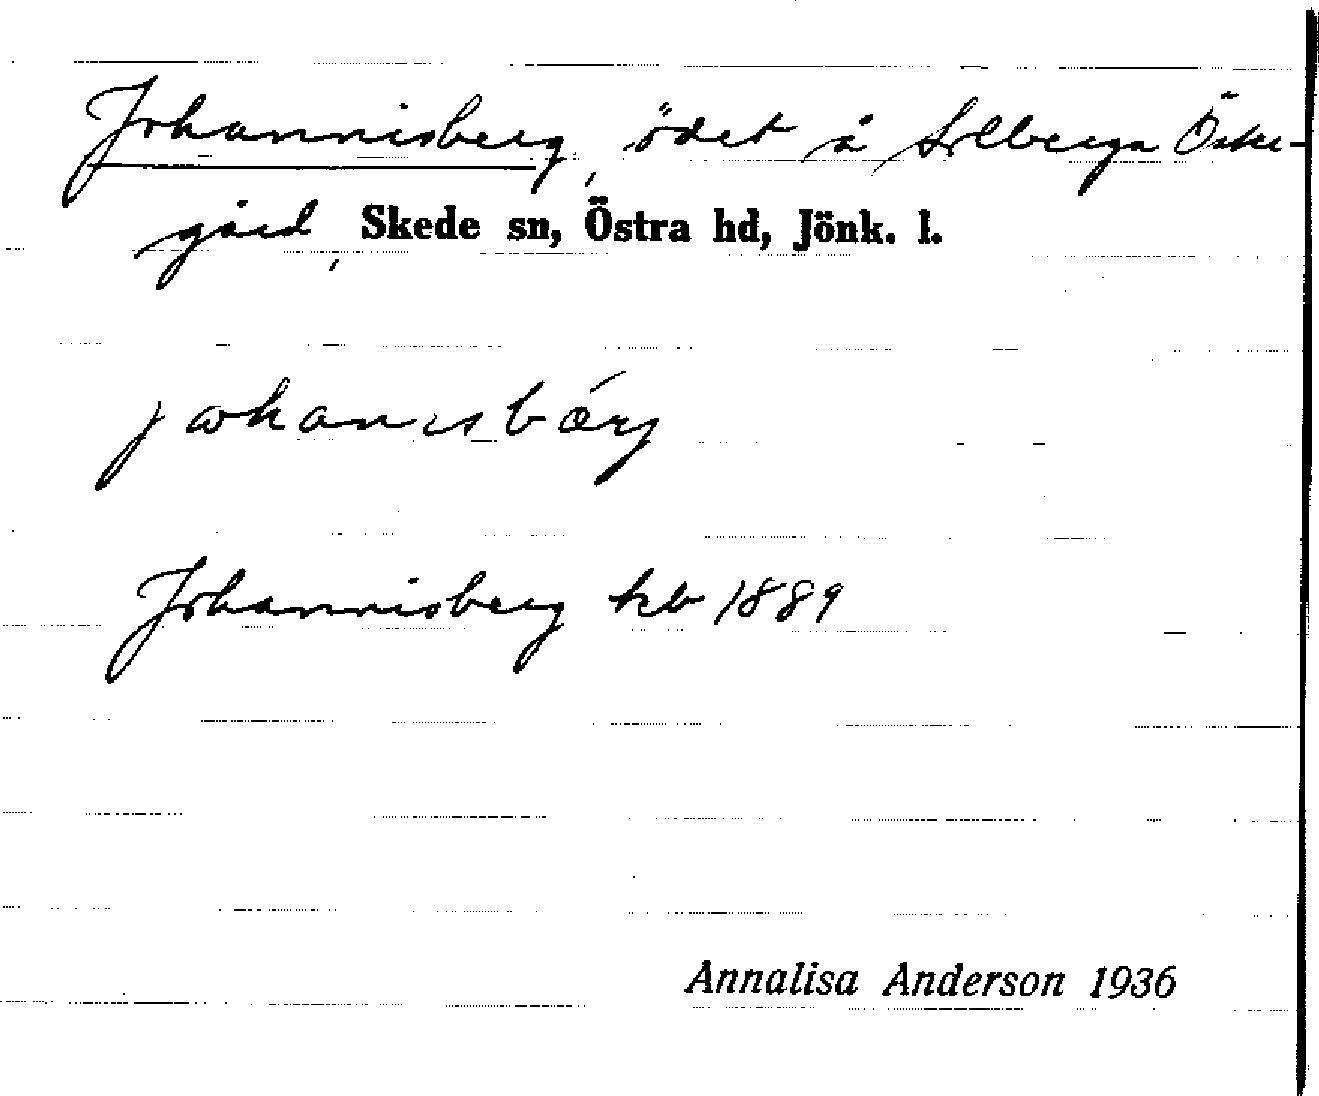 Johannisberg, ödet å Solberga Öster-
gård, Skede sn, Östra hd, Jönk. l.
jωhanısbǽrj
Johannisberg kb 1889
Annalisa Anderson 1936